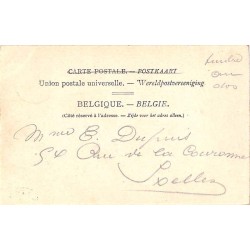 CARTE POSTALE. — POSTKAART
Union postale universelle. — Wereldpostvereeniging
BELGIQUE. — BELGIE.
(Côté réservé à l'adresse. — Zijde voor het adres alleen.)
Mme E. Dupuis
54 Rue de la Couronne
Ixelles